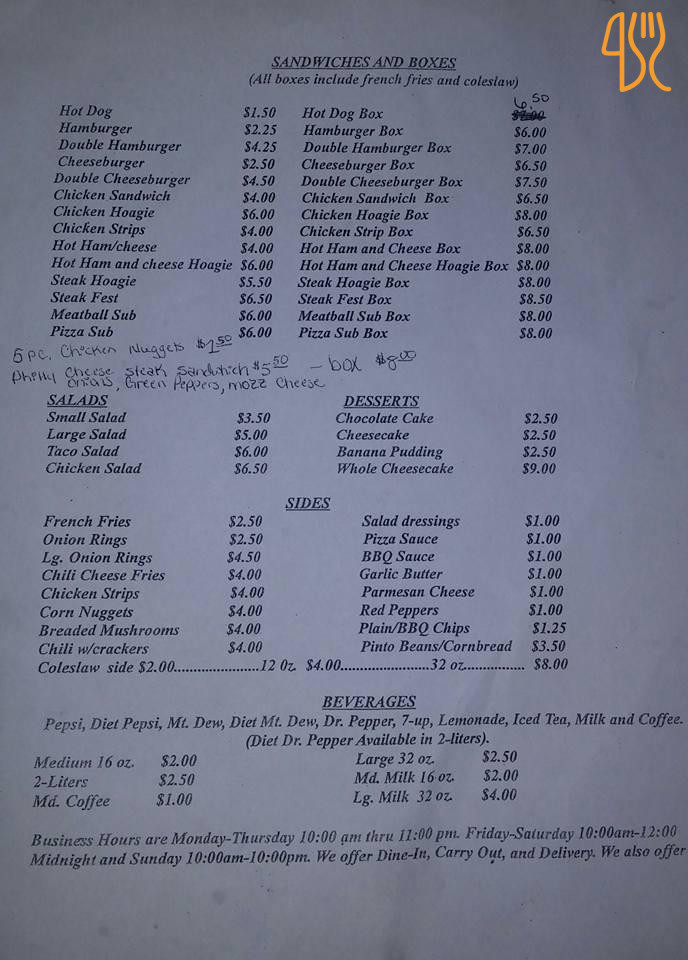 SANDWICHES AND BOXES
(All boxes include french fries and coleslaw)
6.50
Hot Dog $1.50 Hot Dog Box $7.00
Hamburger $2.25 Hamburger Box $6.00
Double Hamburger $4.25 Double Hamburger Box $7.00
Cheeseburger $2.50 Cheeseburger Box $6.50
Double Cheeseburger $4.50 Double Cheeseburger Box $7.50
Chicken Sandwich $4.00 Chicken Sandwich Box $6.50
Chicken Hoagie $6.00 Chicken Hoagie Box $8.00
Chicken Strips $4.00 Chicken Strip Box $6.50
Hot Ham/cheese $4.00 Hot Ham and Cheese Box $8.00
Hot Ham and cheese Hoagie $6.00 Hot Ham and Cheese Hoagie Box $8.00
Steak Hoagie $5.50 Steak Hoagie Box $8.00
Steak Fest $6.50 Steak Fest Box $8.50
Meatball Sub $6.00 Meatball Sub Box $8.00
Pizza Sub $6.00 Pizza Sub Box $8.00
5 pc. Chicken Nuggets $1.50
Philly Cheese Steak Sandwhich $5.50 - box $8.00
Onions, Green Peppers, Mozz Cheese
SALADS DESSERTS
Small Salad $3.50 Chocolate Cake $2.50
Large Salad $5.00 Cheesecake $2.50
Taco Salad $6.00 Banana Pudding $2.50
Chicken Salad $6.50 Whole Cheesecake $9.00
SIDES
French Fries $2.50 Salad dressings $1.00
Onion Rings $2.50 Pizza Sauce $1.00
Lg. Onion Rings $4.50 BBQ Sauce $1.00
Chili Cheese Fries $4.00 Garlic Butter $1.00
Chicken Strips $4.00 Parmesan Cheese $1.00
Corn Nuggets $4.00 Red Peppers $1.00
Breaded Mushrooms $4.00 Plain/BBQ Chips $1.25
Chili w/crackers $4.00 Pinto Beans/Cornbread $3.50
Coleslaw side $2.00......................12 oz. $4.00......................32 oz................ $8.00
BEVERAGES
Pepsi, Diet Pepsi, Mt. Dew, Diet Mt. Dew, Dr. Pepper, 7-up, Lemonade, Iced Tea, Milk and Coffee.
(Diet Dr. Pepper Available in 2-liters).
Medium 16 oz. $2.00 Large 32 oz. $2.50
2-Liters $2.50 Md. Milk 16 oz. $2.00
Md. Coffee $1.00 Lg. Milk 32 oz. $4.00
Business Hours are Monday-Thursday 10:00 am thru 11:00 pm. Friday-Saturday 10:00am-12:00
Midnight and Sunday 10:00am-10:00pm. We offer Dine-In, Carry Out, and Delivery. We also offer